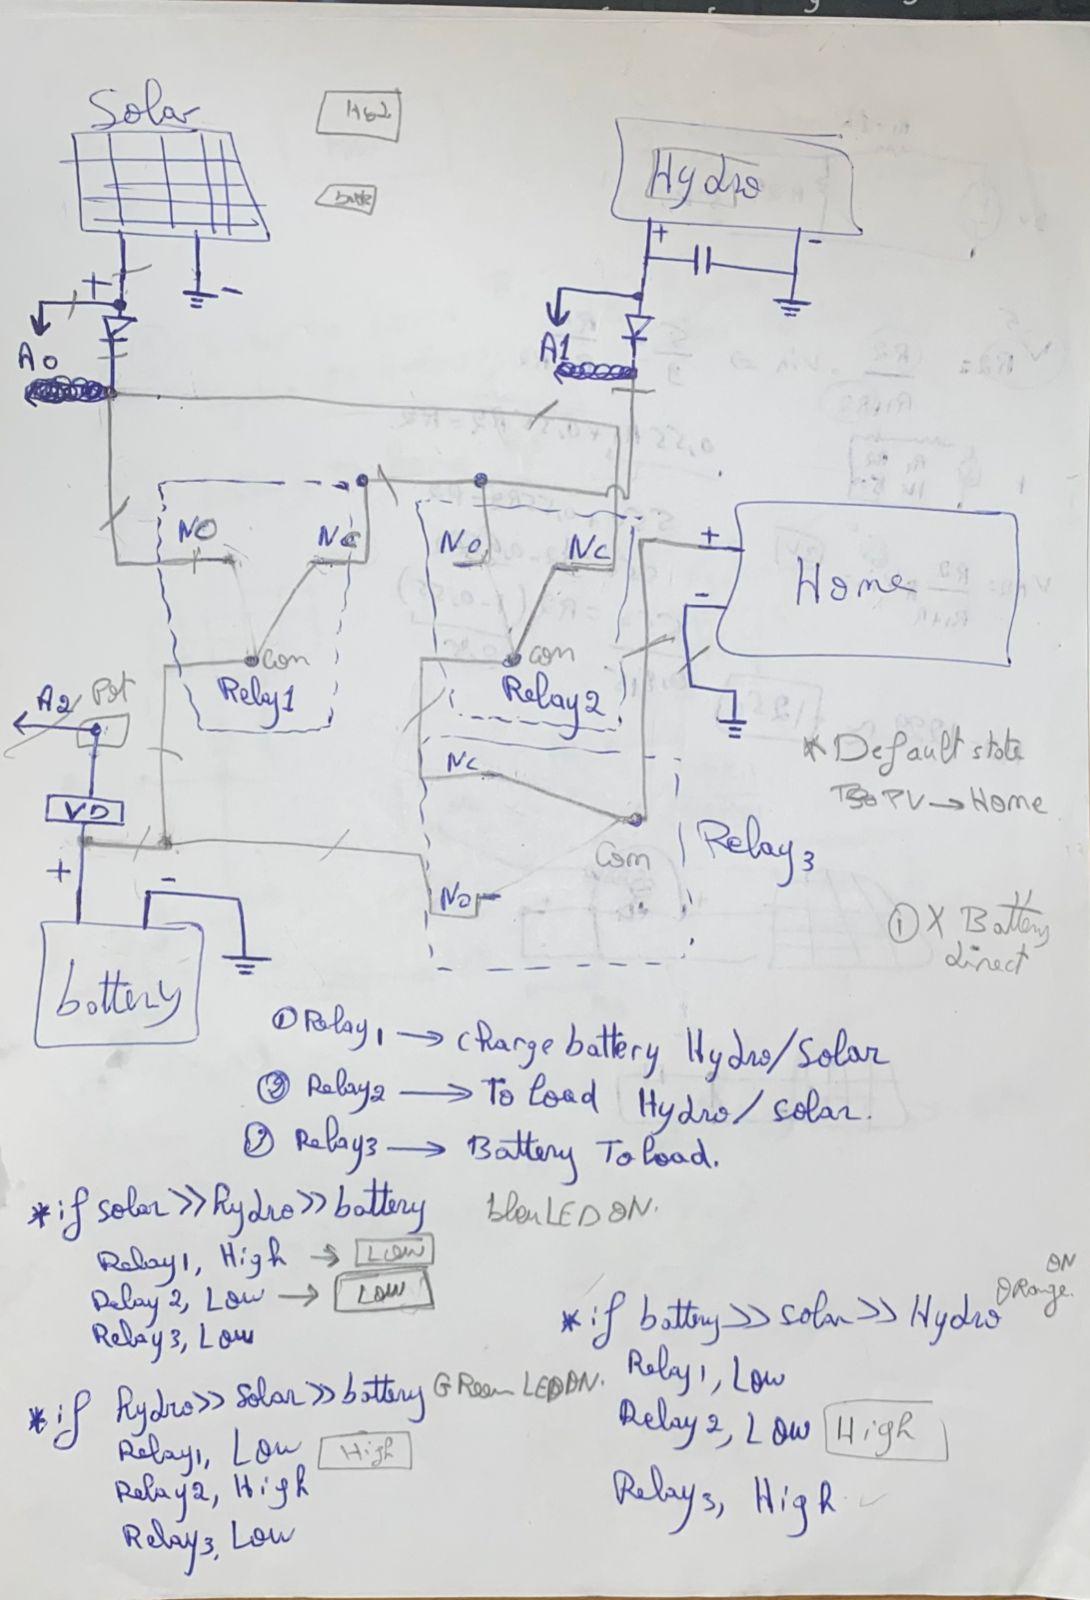 Solar
Hydro
+
-
+
-
A0
A1
NO
NC
NO
NC
+
-
Home
Com
Relay1
Com
Relay2
A2
Pot
VD
NC
* Default state
PV → Home
Com
Relay3
+
-
NO
① X Battery
direct
battery
① Relay1 → charge battery Hydro/Solar
② Relay2 → To Load Hydro/solar.
Relay3 → Battery To load.
* if solar >> hydro >> battery
LED ON.
Relay1, High → LOW
Relay2, Low → LOW
Relay3, Low
* if hydro >> Solar >> battery GReen LED ON.
Relay1, Low High
Relay2, High
Relay3, Low
ON
ORange.
* if battery >> solar >> Hydro
Relay1, Low
Relay2, Low High
Relay3, High